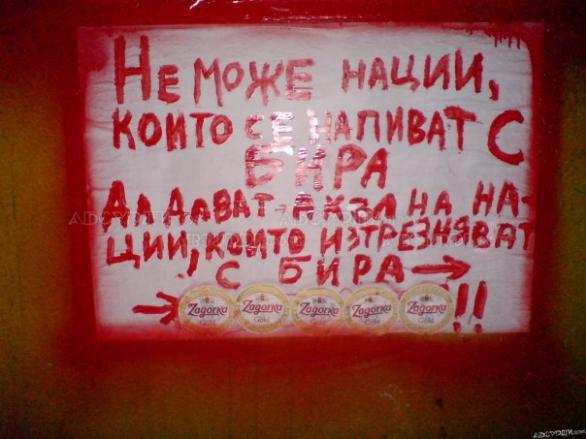 Не може нации,
които се напиват с
бира
да дават акъл на на-
ции, които изтрезняват
с бира →
→ Zagorka Zagorka Zagorka Zagorka Zagorka !!
Gold Gold Gold Gold
авсурди.com